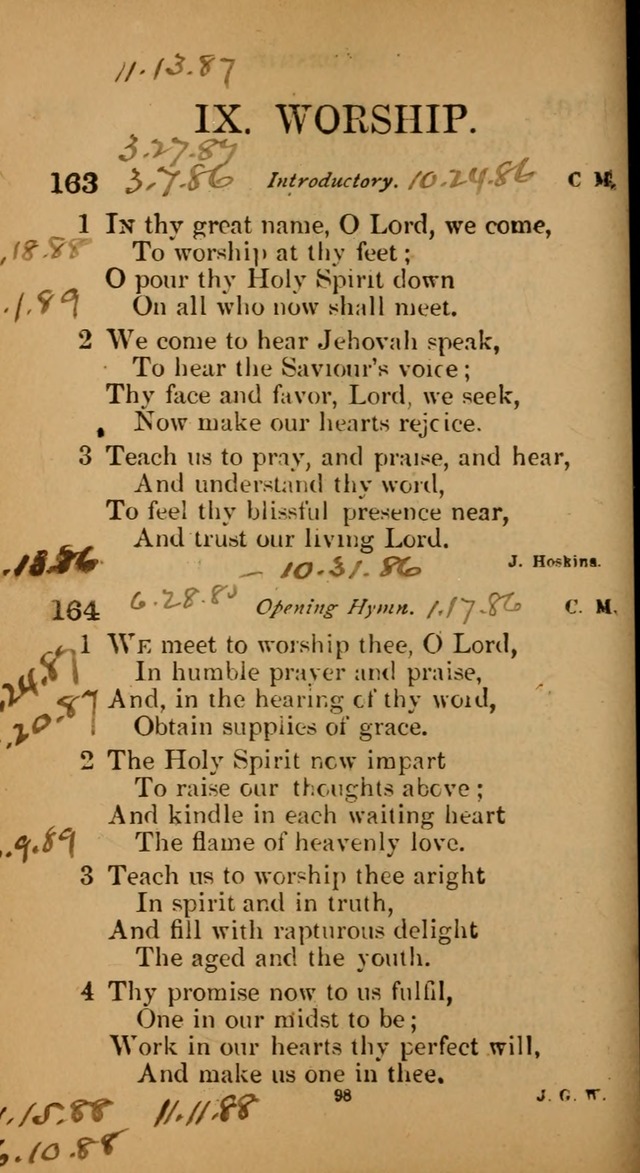 11.13.87
IX. WORSHIP.
3.27.87
163 3.7.86 Introductory. 10.24.86 C M.
1 IN thy great name, O Lord, we come,
,18.88 To worship at thy feet;
O pour thy Holy Spirit down
.1.89 On all who now shall meet.
2 We come to hear Jehovah speak,
To hear the Saviour's voice;
Thy face and favor, Lord, we seek,
Now make our hearts rejoice.
3 Teach us to pray, and praise, and hear,
And understand thy word,
To feel thy blissful presence near,
And trust our living Lord.
J. Hoskins.
– 10.31.86
164 Opening Hymn. 1.17.86 C. M.
1 WE meet to worship thee, O Lord,
In humble prayer and praise,
And, in the hearing of thy word,
Obtain supplies of grace.
2 The Holy Spirit now impart
To raise our thoughts above;
And kindle in each waiting heart
.9.89 The flame of heavenly love.
3 Teach us to worship thee aright
In spirit and in truth,
And fill with rapturous delight
The aged and the youth.
4 Thy promise now to us fulfil,
One in our midst to be;
Work in our hearts thy perfect will,
And make us one in thee.
98 J. G. W.
.15.88 11.11.88
.10.88